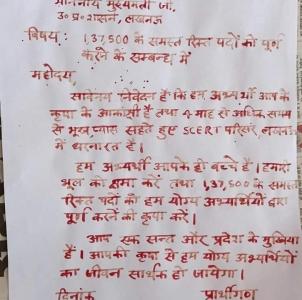 माननीय मुख्यमंत्री जी,
उ० प्र० शासन, लखनऊ
विषय: 1,37,500 के समस्त रिक्त पदों को पूर्ण
करने के सम्बन्ध में
महोदय,
सविनय निवेदन है कि हम अभ्यर्थी आप के
कृपा के आकांक्षी हैं तथा 4 माह से अधिक समय
से भूख प्यास सहते हुए SCERT परिसर, लखनऊ
में धरनारत हैं।
हम अभ्यर्थी आपके ही बच्चे हैं। हमारी
भूल को क्षमा करें तथा 1,37,500 के समस्त
रिक्त पदों को हम योग्य अभ्यर्थियों द्वारा
पूर्ण करने की कृपा करें।
आप एक सन्त और प्रदेश के मुखिया
हैं। आपकी कृपा से हम योग्य अभ्यर्थियों
का जीवन सार्थक हो जायेगा।
दिनांक प्रार्थीगण